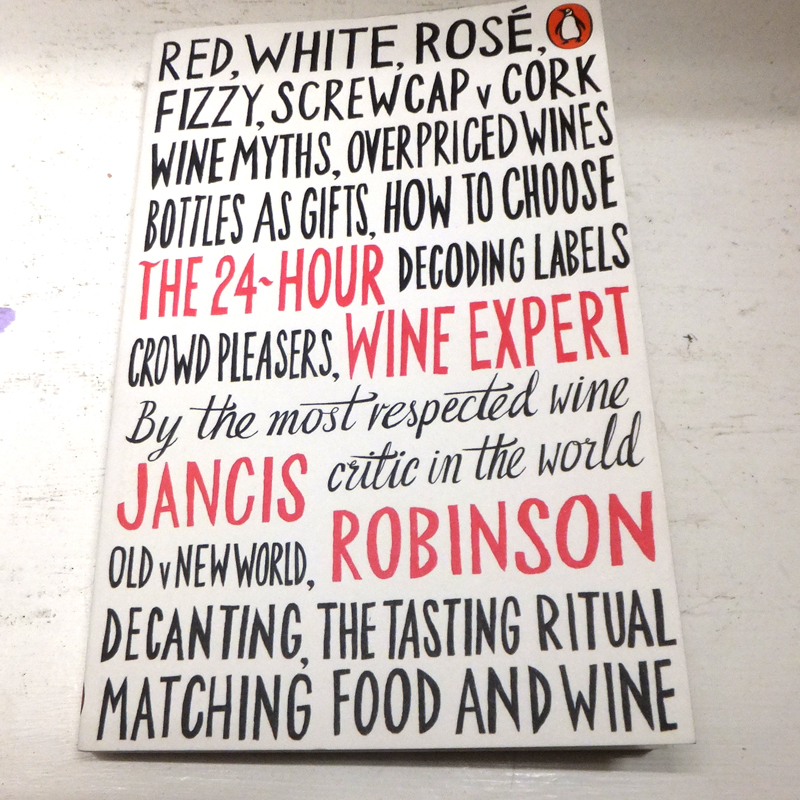 RED, WHITE, ROSÉ,
FIZZY, SCREWCAP v CORK
WINE MYTHS, OVERPRICED WINES
BOTTLES AS GIFTS, HOW TO CHOOSE
THE 24~HOUR DECODING LABELS
CROWD PLEASERS, WINE EXPERT
By the most respected wine
JANCIS critic in the world
OLD v NEW WORLD, ROBINSON
DECANTING, THE TASTING RITUAL
MATCHING FOOD AND WINE